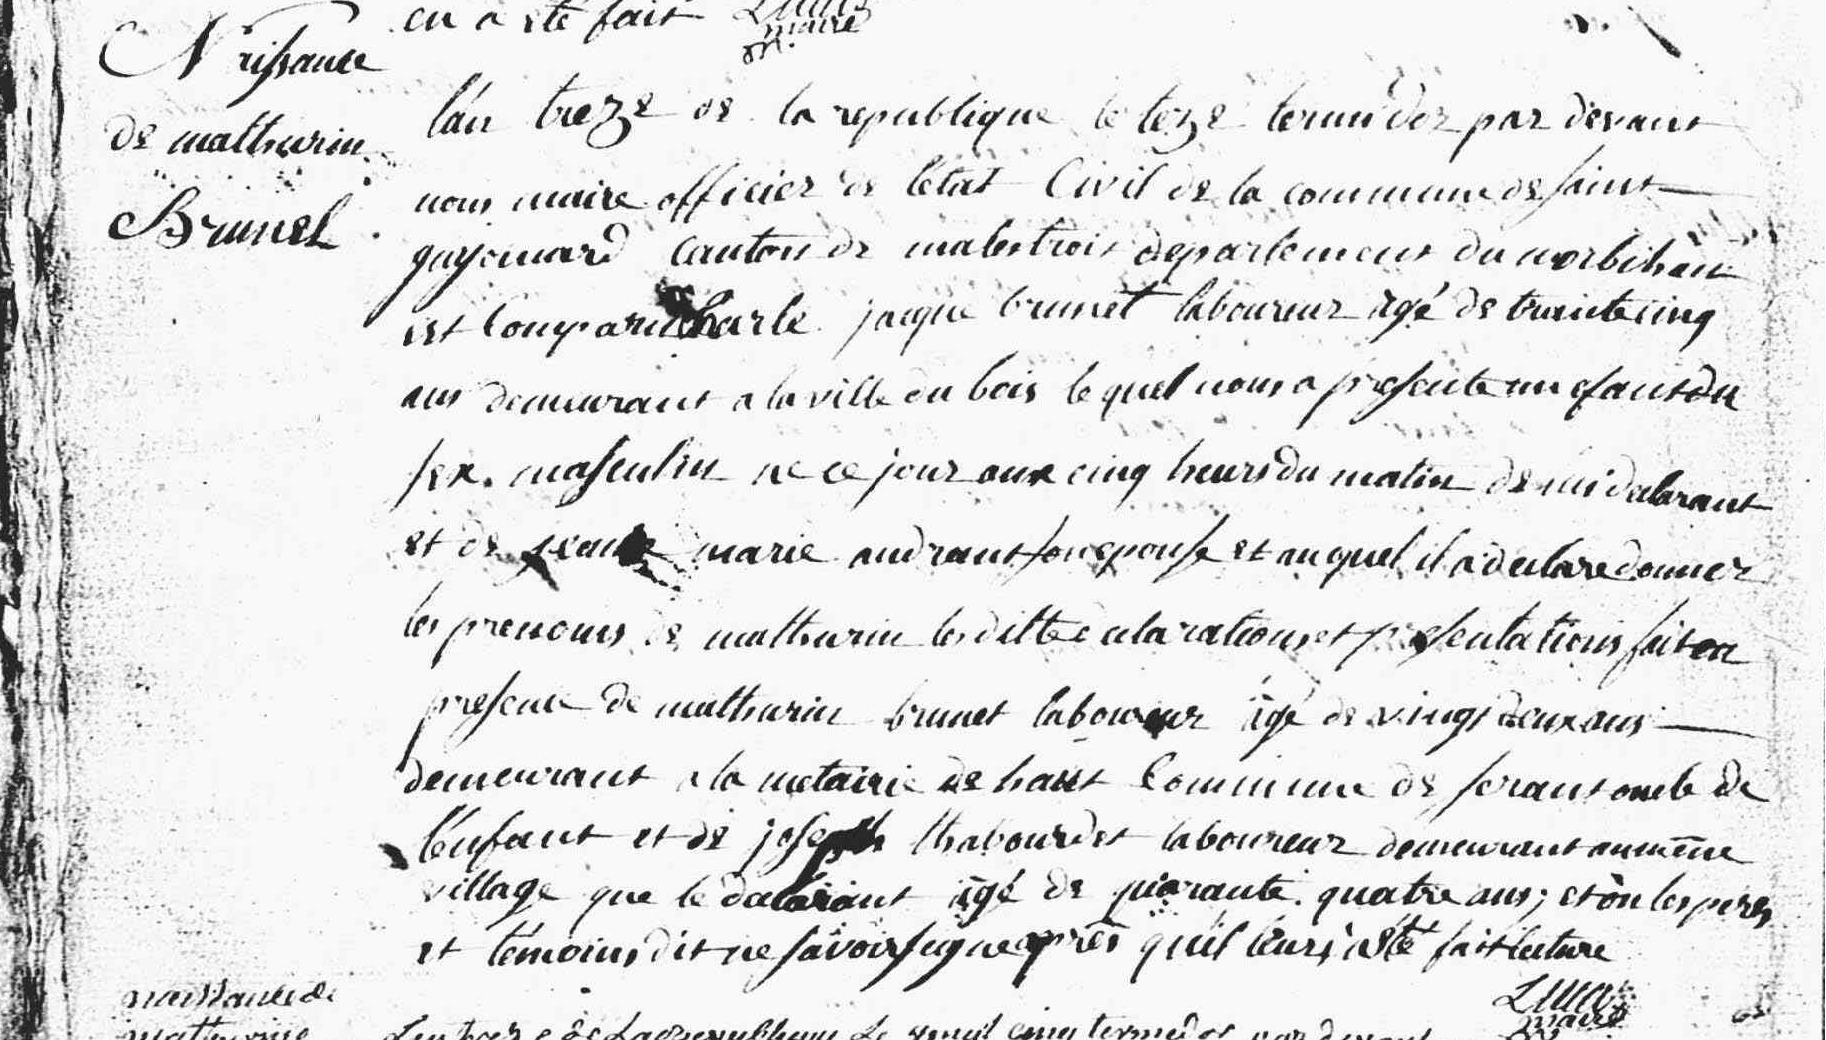 en a ete fait Lucas
maire
Naissance
de mathurin
Brunel
l'an treze de la republique le seze termidor par devant
nous maire officier de l'état Civil de la commune de saint
guyomard canton de malestroit departement du morbihan
est Comparu Charle jacque brunet laboureur agé de trante cinq
ans demeurant a la ville du bois le quel nous a presente un efant du
sex. masculin ne ce jour aux cinq heurs du matin de lui declarant
et de jeanne marie audrant son epouse et au quel il a declare donner
les prenoms de mathurin les ditte declarations et presentations fait en
presence de mathurin brunet laboureur âgé de vingt deux ans
demeurant a la metairie de haut Commune de serant oncle de
l'enfant et de joseph thabourdet laboureur demeurant au même
village que le declarant âgé de quarante quatre ans; et on les peres
et témoins dit ne savoir signe après qu'il leurs a été fait lecture
Lucas
maire
naissance de
mathurine
L'en treze de La republique Le vingt cinq termidor par devant